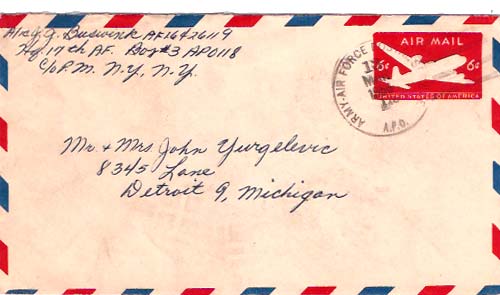 A/2c J. G. Buswink AF16426119
Hq 17th AF. Box #3 APO 118
C/o P.M. N.Y., N.Y.
ARMY-AIR FORCE
A.P.O.
AIR MAIL
6¢ 6¢
UNITED STATES OF AMERICA
Mr + Mrs John Yurgelevic
8345 Lane
Detroit 9, Michigan